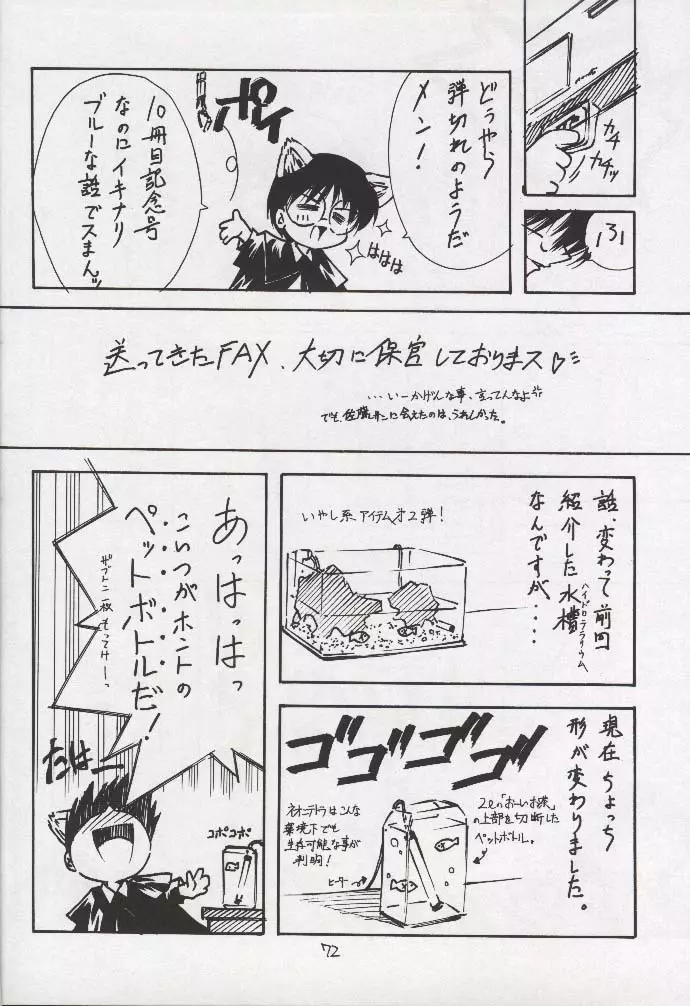 カチ
カチッ
ふー
どうやら
弾切れのようだ
メン！
ポイ
ははは
10冊目記念号
なのにイキナリ
ブルーな話で
スまんッ
送ってきたFAX、大切に保管しておりまス♡
…いーかげんな事、言ってんなよ
でも、佐藤サンに会えたのは、うれしかった。
話、変わって前回
紹介した水槽
ハイドロテラリウム
なんですが‥‥
いやし系アイテム才2弾！
現在ちょっち
形が変わりました。
ゴゴゴゴ
2ℓの「おーいお茶」
の上部を切断した
ペットボトル。
ネオンテトラはこんな
環境下でも
生存可能な事が
判明！
ヒーター
あっはっはっ
こいつがホントの
ペットボトルだ！
ザブトン一枚もってけーっ
たはー
コポコポ
72